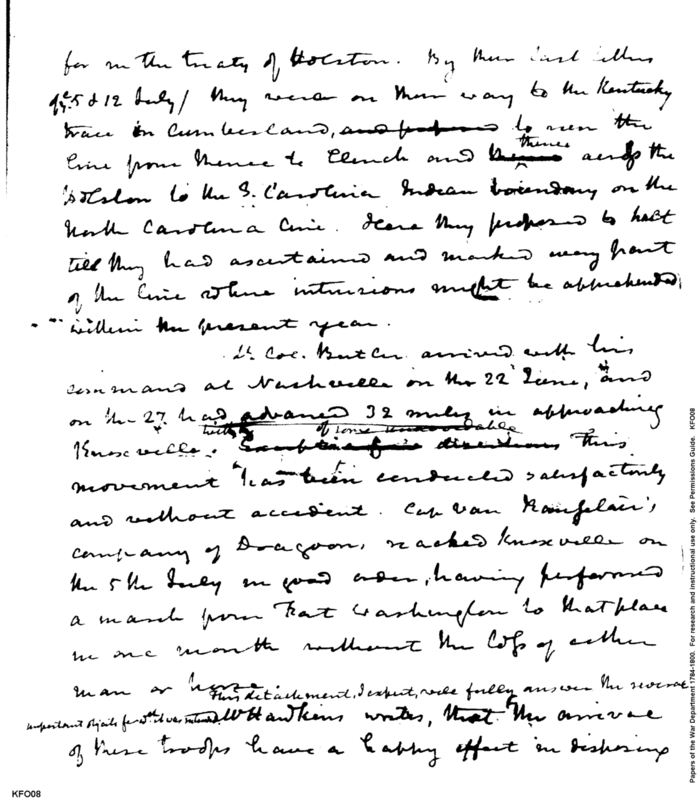 for in the treaty of Holston. By their last letters
of ye. 5 & 12 July/ they were on their way to the Kentucky
trace in Cumberland, and proposed to run the
line from thence to Clench and thence across the
Holston to the S. Carolina Indian boundary on the
North Carolina line. Here they proposed to halt
till they had ascertained and marked every part
of the line where intrusions might be apprehended,
within the present year.
Lt Col. Butler arrived with his
command at Nashville on the 22 June, and
on the 27. had advanced 32 miles in approaching
Knoxville. with of some unavoidable
desertions this
movement has been conducted satisfactorily
and without accident. Cap Van Ranselair's
company of Dragoons, reached Knoxville on
the 5th July in good order, having performed
a march from Fort Washington to that place
in one month without the loss of either
man or horse.
This detachment, I expect, will fully answer the several
important objects for wch it was
Mr Hawkins writes, that the arrival
of these troops have a happy effect in disposing
KFO08
Papers of the War Department 1784-1800. For research and instructional use only. See Permissions Guide. KFO08